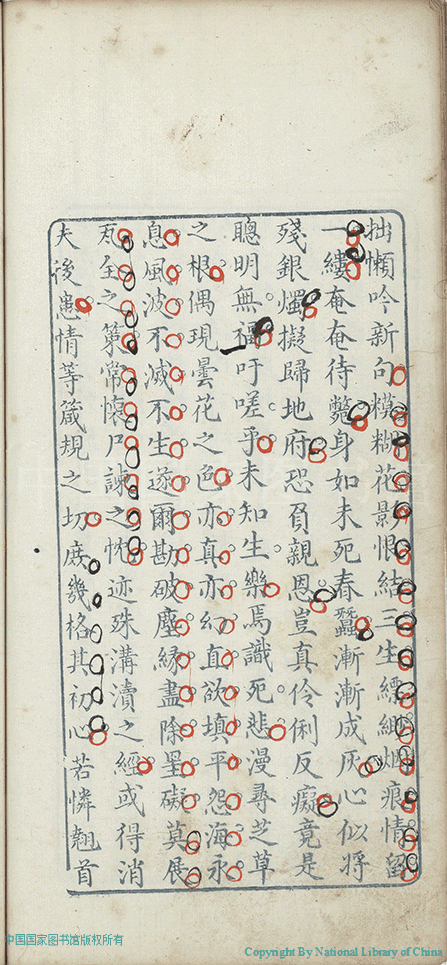 拙懶吟新句糢糊花影恨結三生縹緲烟痕情留
一縷奄奄待斃身如未死春蠶漸漸成灰心似將
殘銀燭擬歸地府恐負親恩豈真伶俐反癡竟是
聰明無福吁嗟乎未知生樂焉識死悲漫尋芝草
之根偶現曇花之色亦真亦幻直欲填平怨海永
息風波不滅不生遂爾勘破塵緣盡除罣礙莫展
死全之策常懷尸諫之忱迹殊溝瀆之經或得消
夫後患情等箴規之切庶幾格其初心若憐翹首
中国国家图书馆版权所有
Copyright By National Library of China